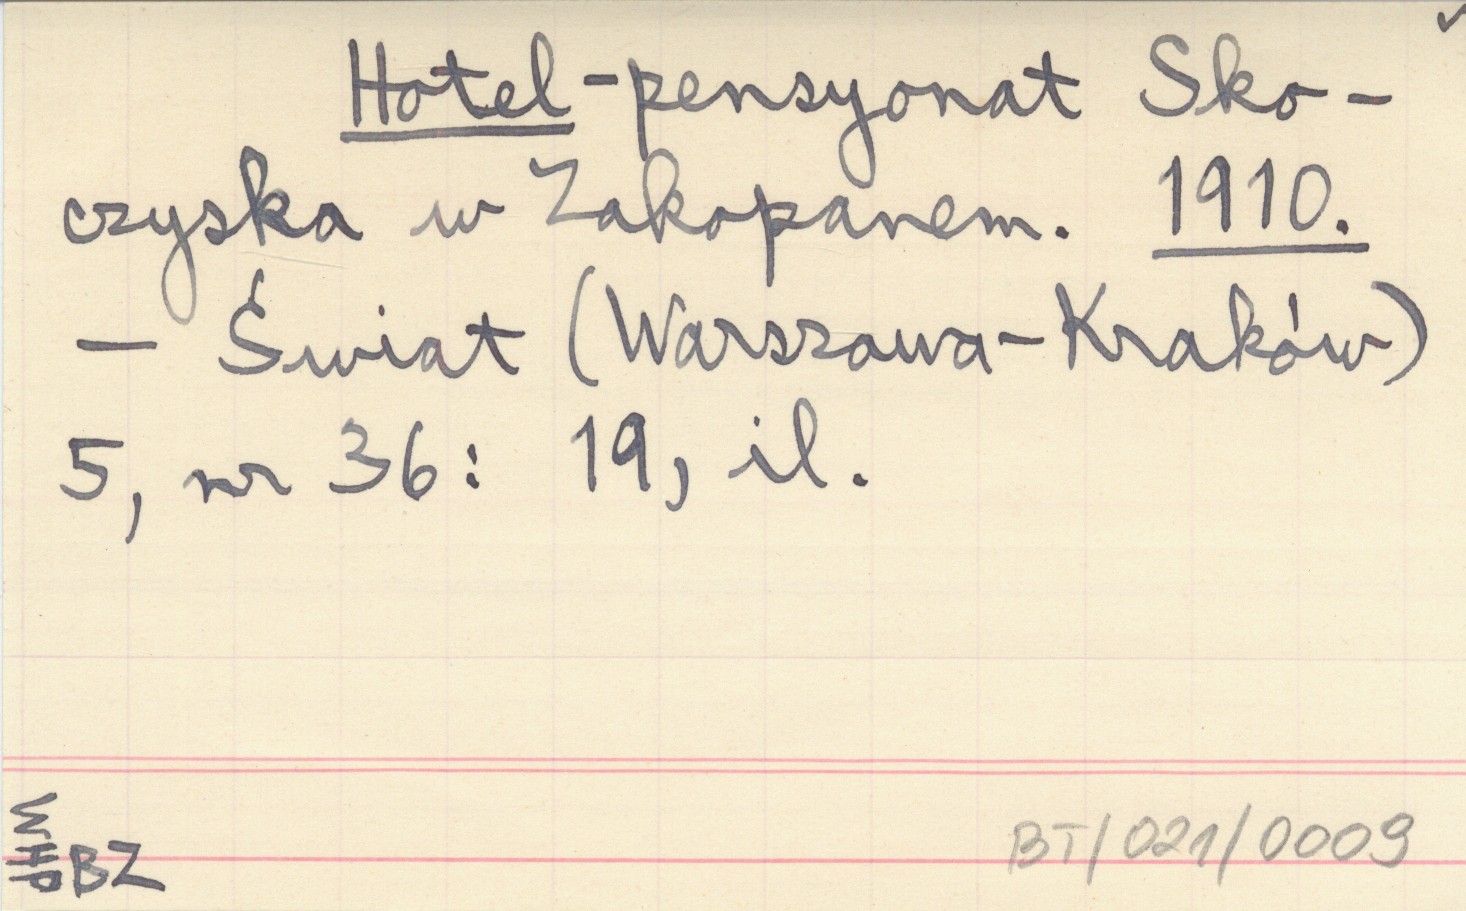 Hotel-pensyonat Sko-
czyska w Zakopanem. 1910.
— Świat (Warszawa-Kraków)
5, nr 36: 19, il.
WHP BZ
BT/021/0009